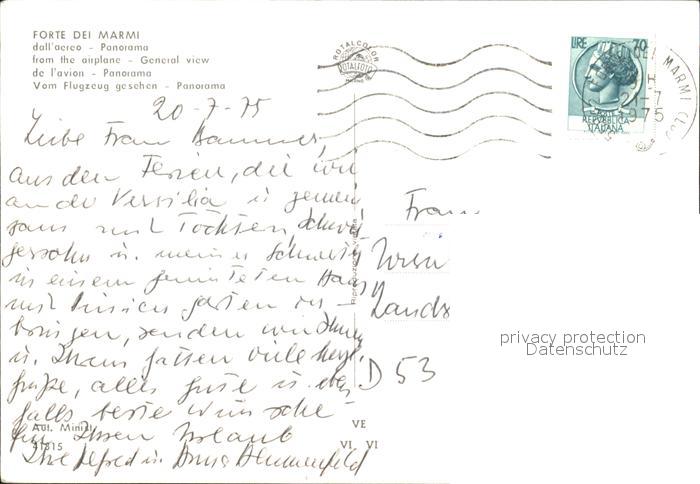 FORTE DEI MARMI
dall'aereo - Panorama
from the airplane - General view
de l'avion - Panorama
Vom Flugzeug gesehen - Panorama
20-7-75
Liebe Frau
aus den Ferien, die wir
an der Versilia u gemein
sam mit Töchtern, Schwie
gersohn u. meiner Schwester
in einem gemieteten Haus
mit Garten ver-
bringen, senden wir Ihnen
u. Ihrem Gatten viele herzl.
Grüße, alles Gute u. eben
falls beste Wünsche
für Ihren Urlaub
Ihre Alfred u. Anna Blumenfeld
Aut. Minist.
41815
ROTALCOLOR
ROTALFOTO
MILANO
Riproduzione vietata
VE
VI VI
LIRE 70
REPUBBLICA
ITALIANA
MARMI
21-7
1975
Frau
Land
D 53
privacy protection
Datenschutz